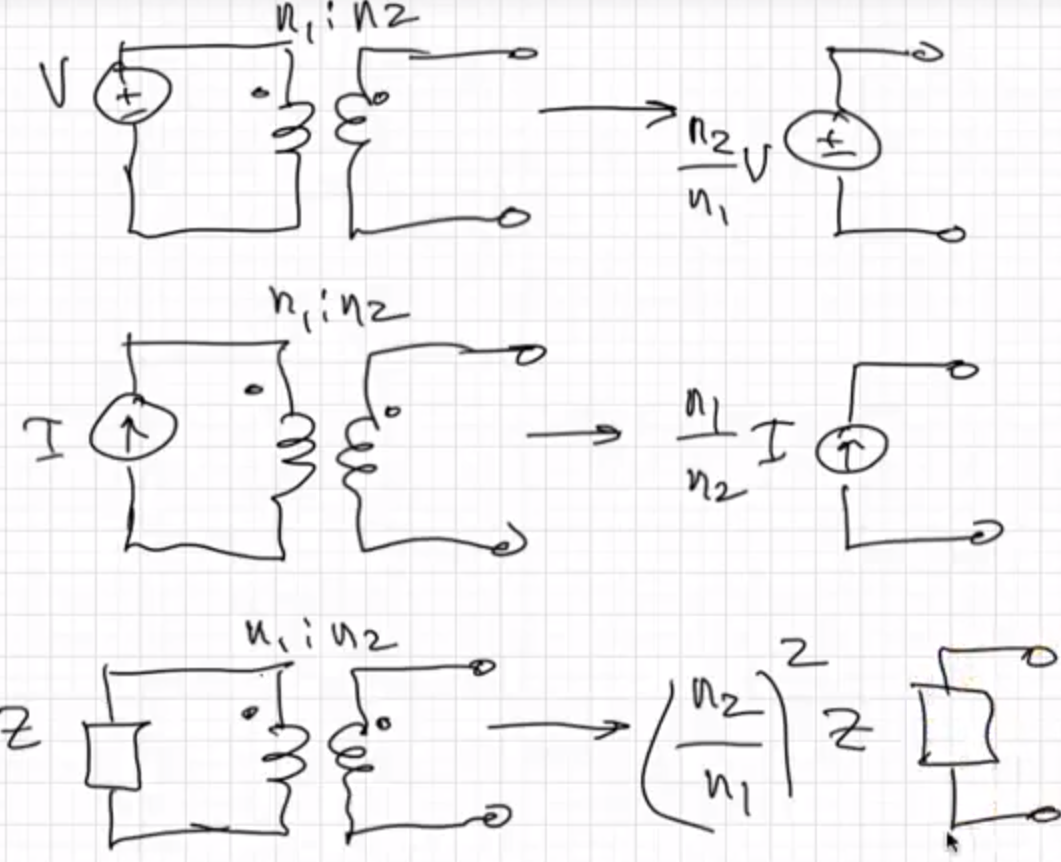 n₁ : n₂
V + −
→ n₂/n₁ V + −
n₁ : n₂
I ↑
→ n₁/n₂ I ↑
n₁ : n₂
Z
→ (n₂/n₁)² Z